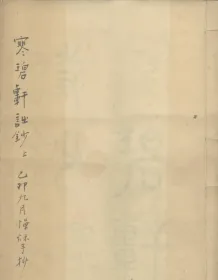 寒碧軒詩鈔上 乙卯九月 手抄